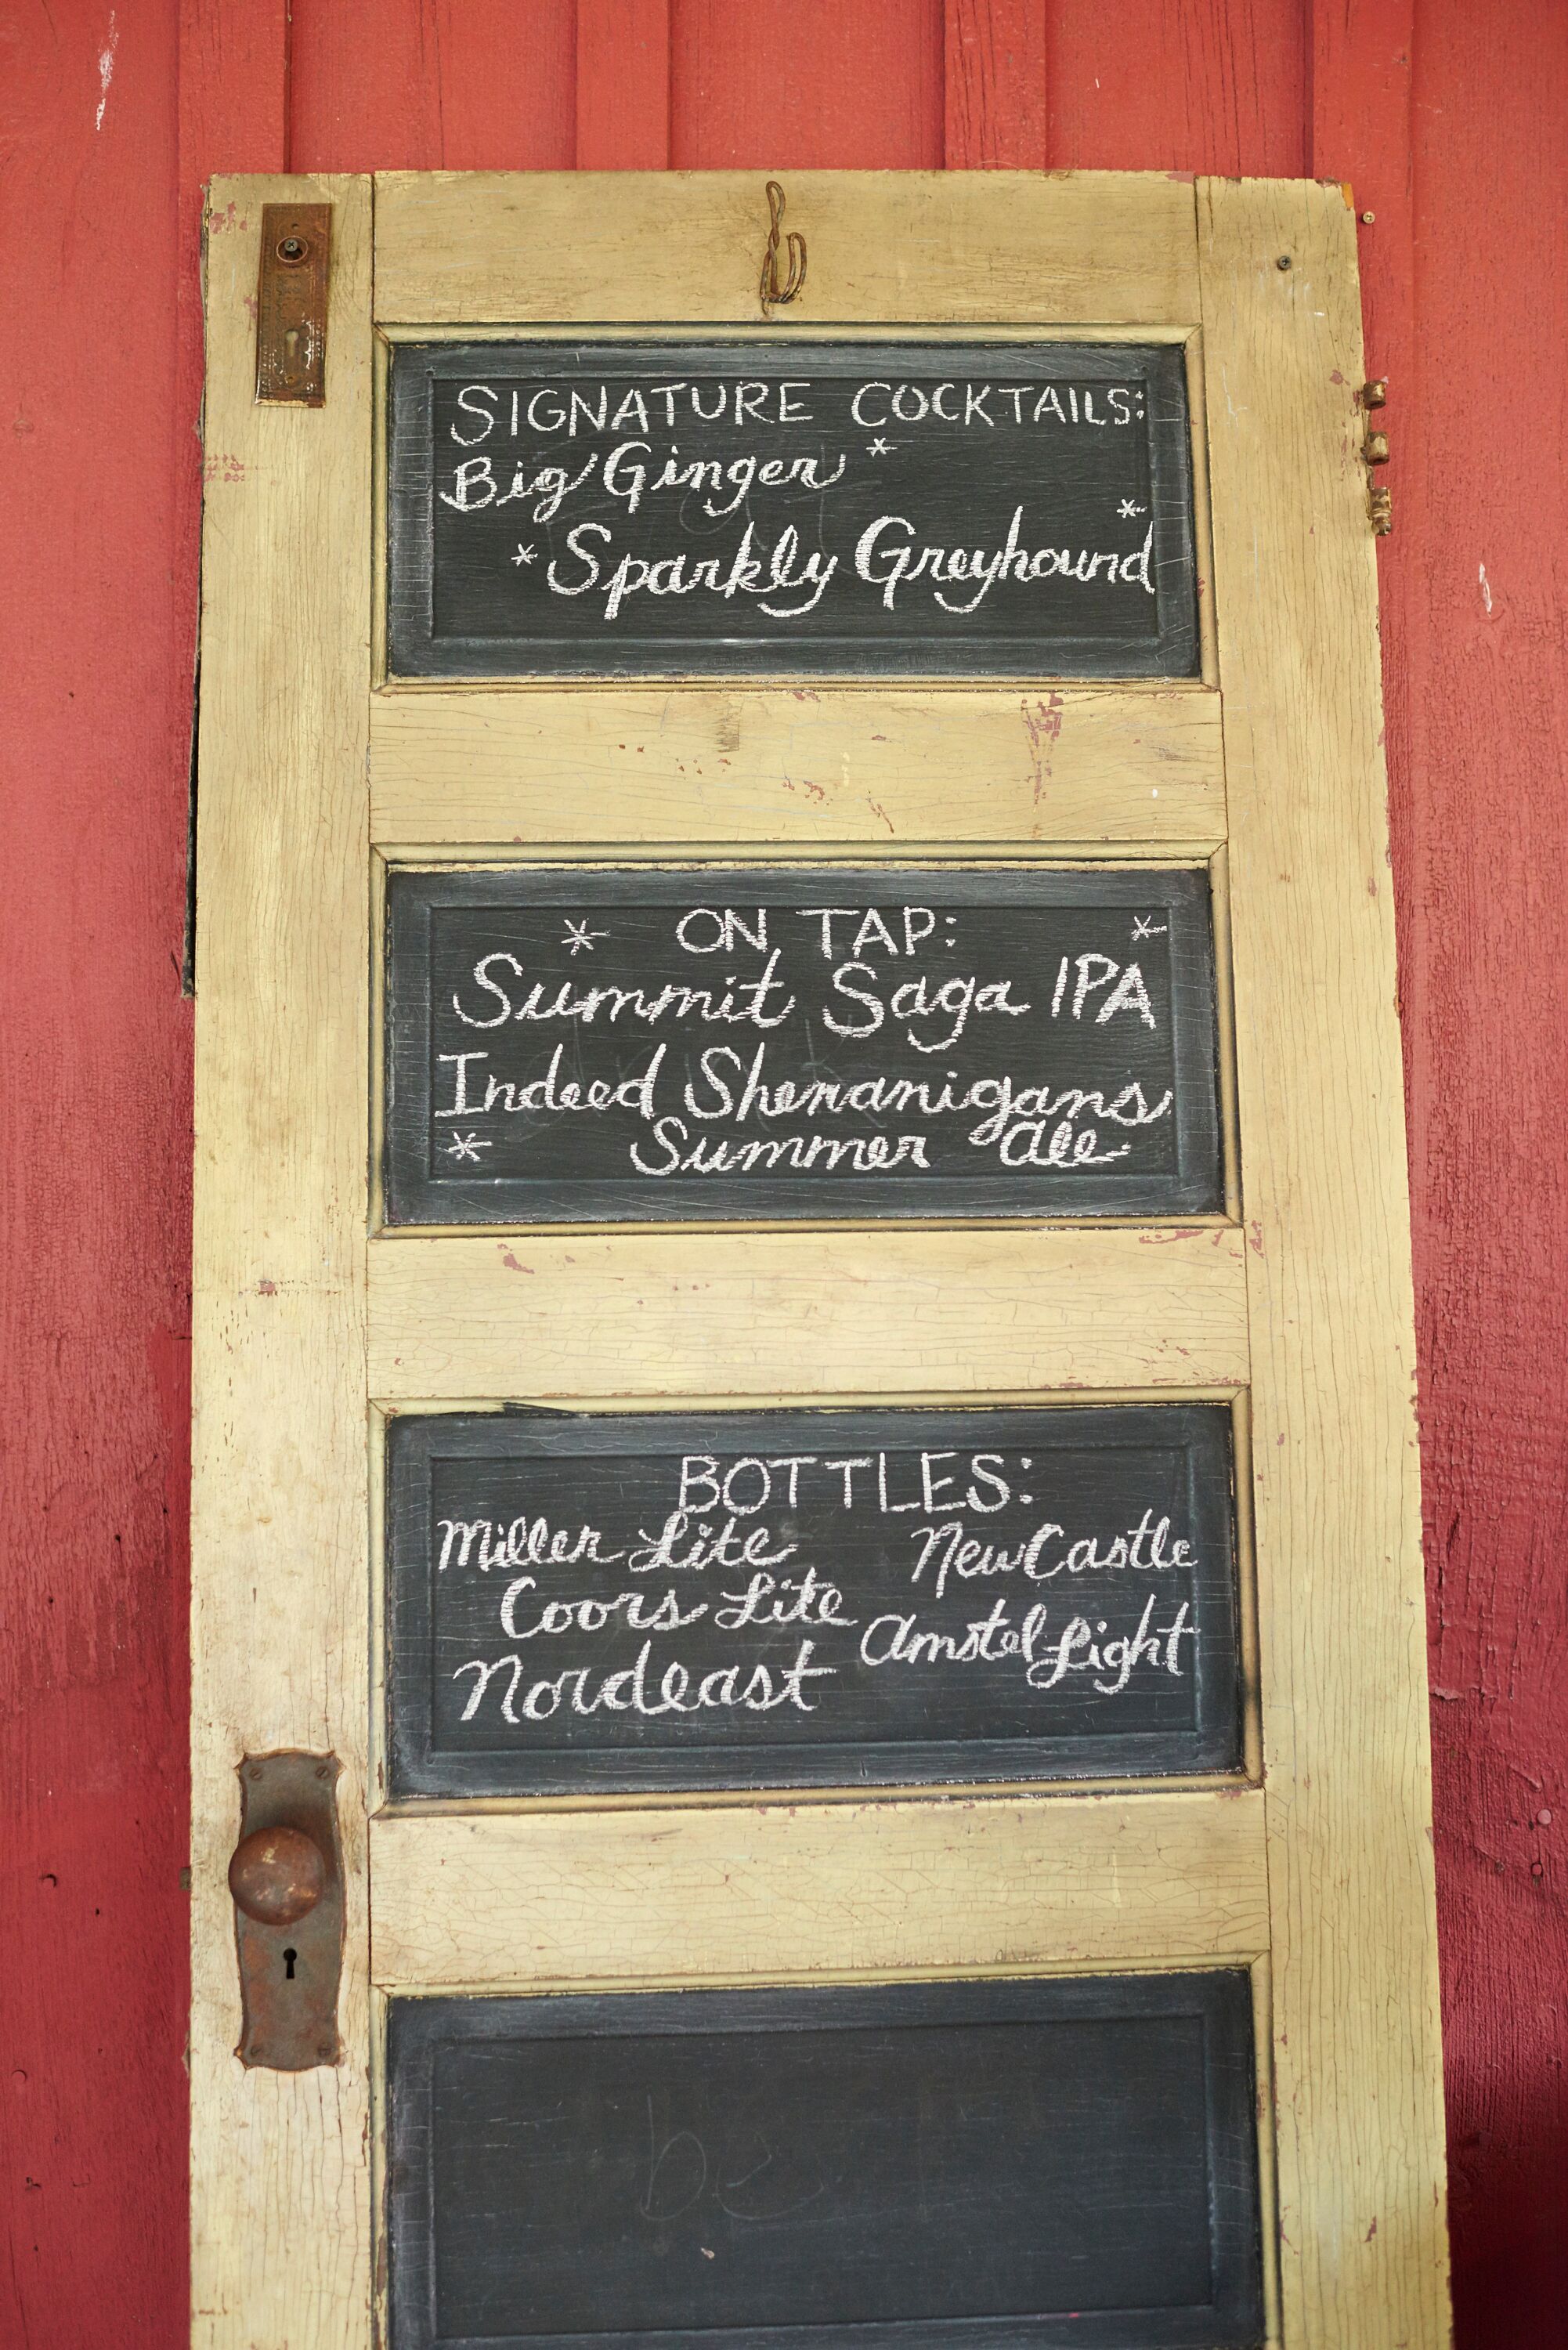 SIGNATURE COCKTAILS:
Big Ginger *
* Sparkly Greyhound *
* ON TAP: *
Summit Saga IPA
Indeed Shenanigans
* Summer Ale
BOTTLES:
Miller Lite NewCastle
Coors Lite Amstel Light
Nordeast
be